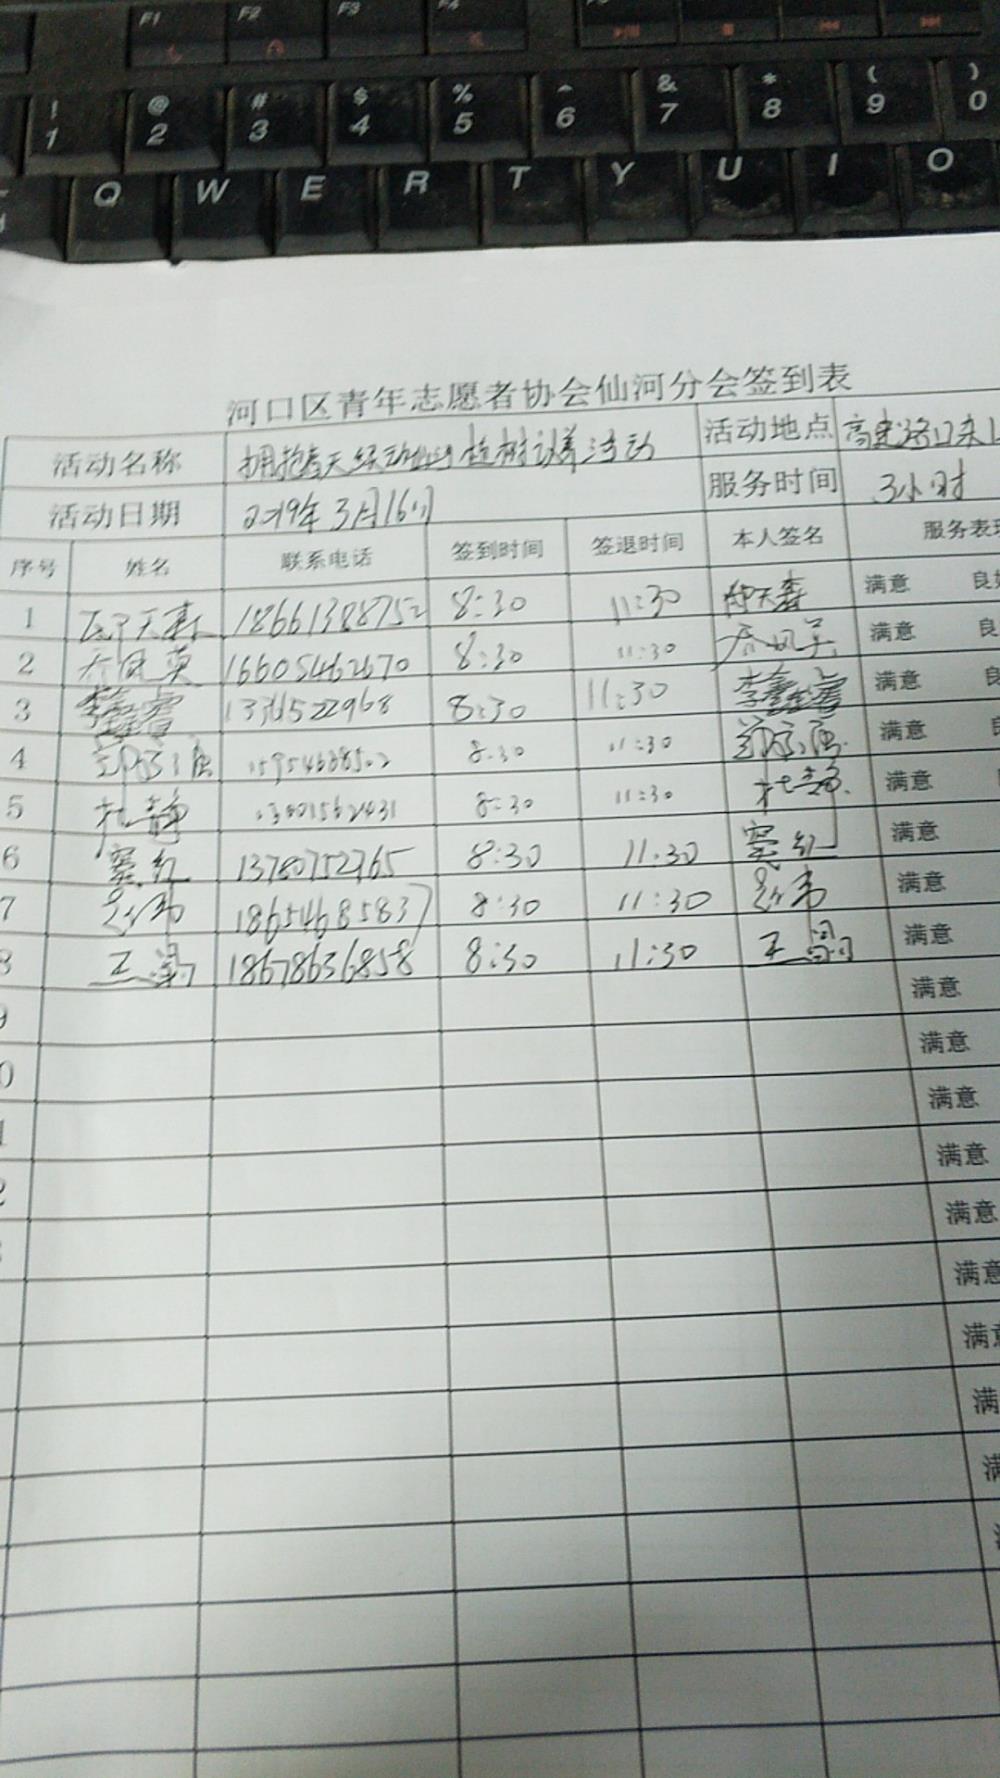 F1 F2 F3 F4
! 1 @ 2 # 3 $ 4 % 5 ^ 6 & 7 * 8 ( 9 ) 0
Q W E R T Y U I O
河口区青年志愿者协会仙河分会签到表
活动名称 拥抱春天绿动仙河植树 活动 活动地点 高速路口
活动日期 2019年3月16日 服务时间 3小时
序号 姓名 联系电话 签到时间 签退时间 本人签名 服务表现
1 天森 18661388752 8:30 11:30 天森 满意 良好
2 乔凤英 16605462670 8:30 11:30 乔凤英 满意 良
3 李鑫睿 8:30 11:30 李鑫睿 满意 良
4 8:30 11:30 满意
5 杜静 8:30 11:30 杜静 满意
6 窦红 13780752765 8:30 11:30 窦红 满意
7 18654685837 8:30 11:30 满意
8 王 18678636858 8:30 11:30 王 满意
9 满意
0 满意
1 满意
2 满意
满意
满意
满意
满
满